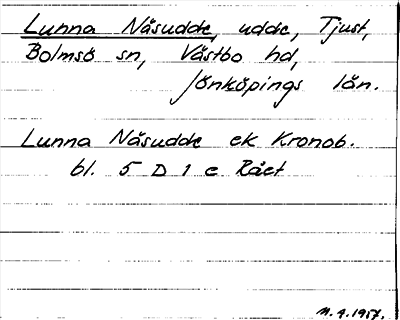 Lunna Näsudde, udde, Tjust,
Bolmsö sn, Västbo hd,
Jönköpings län.
Lunna Näsudde ek Kronob.
bl. 5 D 1 e Rået
11.4.1957.